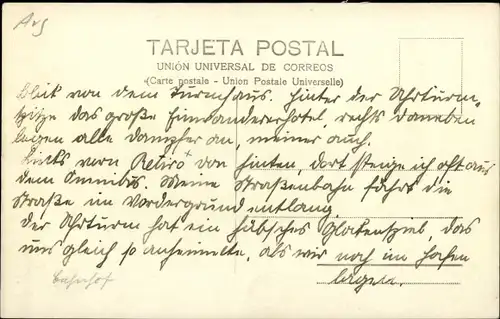 Arg
TARJETA POSTAL
UNIÓN UNIVERSAL DE CORREOS
(Carte postale - Union Postale Universelle)
Blick von dem Turmhaus. Hinter der Uhrturm-
spitze das große Einwandererhotel, rechts daneben
legen alle Dampfer an, meiner auch.
Links vorn Retiro + von hinten, dort steige ich oft aus
dem Omnibus. Meine Straßenbahn fährt die
Straße im Vordergrund entlang
der Uhrturm hat ein hübsches Glockenspiel, das
uns gleich so anheimelte, als wir noch im Hafen
lagen.
Bahnhof